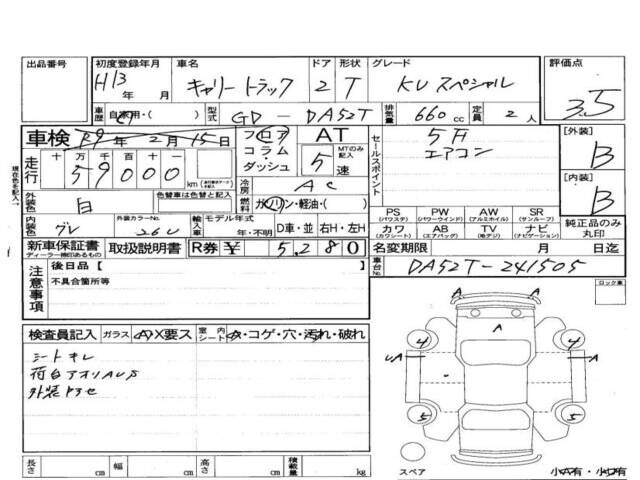 出品番号 初度登録年月 車名 ドア 形状 グレード 評価点
H13 キャリートラック 2 T KUスペシャル 3.5
車歴 自家用・( ) 型式 GD-DA52T 排気量 660 cc 定員 2 人
車検 R9年 2月 15日 フロア AT セールスポイント 5F [外装]
走行 十 万 千 百 十 コラム・ダッシュ 5速 MTのみ記入 エアコン B
59000 km
冷房 AC [内装]
外装色 白 色替車は色替と記入 燃料 ガソリン・軽油・( ) B
現在色を記入→
PS (パワステ) PW (パワーウインド) AW (アルミホイル) SR (サンルーフ)
内装色 グレ 外装カラーNo. 26U 輸入車 モデル年式 年・不明 D車・並 右H・左H
カワ (カワシート) AB (エアバッグ) TV (地デジ) ナビ (ナビゲーション) 純正品のみ丸印
新車保証書 ディーラー捺印あるもの 取扱説明書 R券 ¥ 5,280 名変期限 月 日迄
注意事項 後日品 [ 車台No. DA52T-241505
不具合箇所等 ロック車
検査員記入 ガラス A・X要ス 室内シート ・コゲ・穴・汚れ・破れ
シートキレ
荷台アオリAUS
外装キズセ
A A
A
4 4
UA A
5 5
スペア 小A有・小U有
長さ cm 幅 cm 高さ cm 積載量 kg